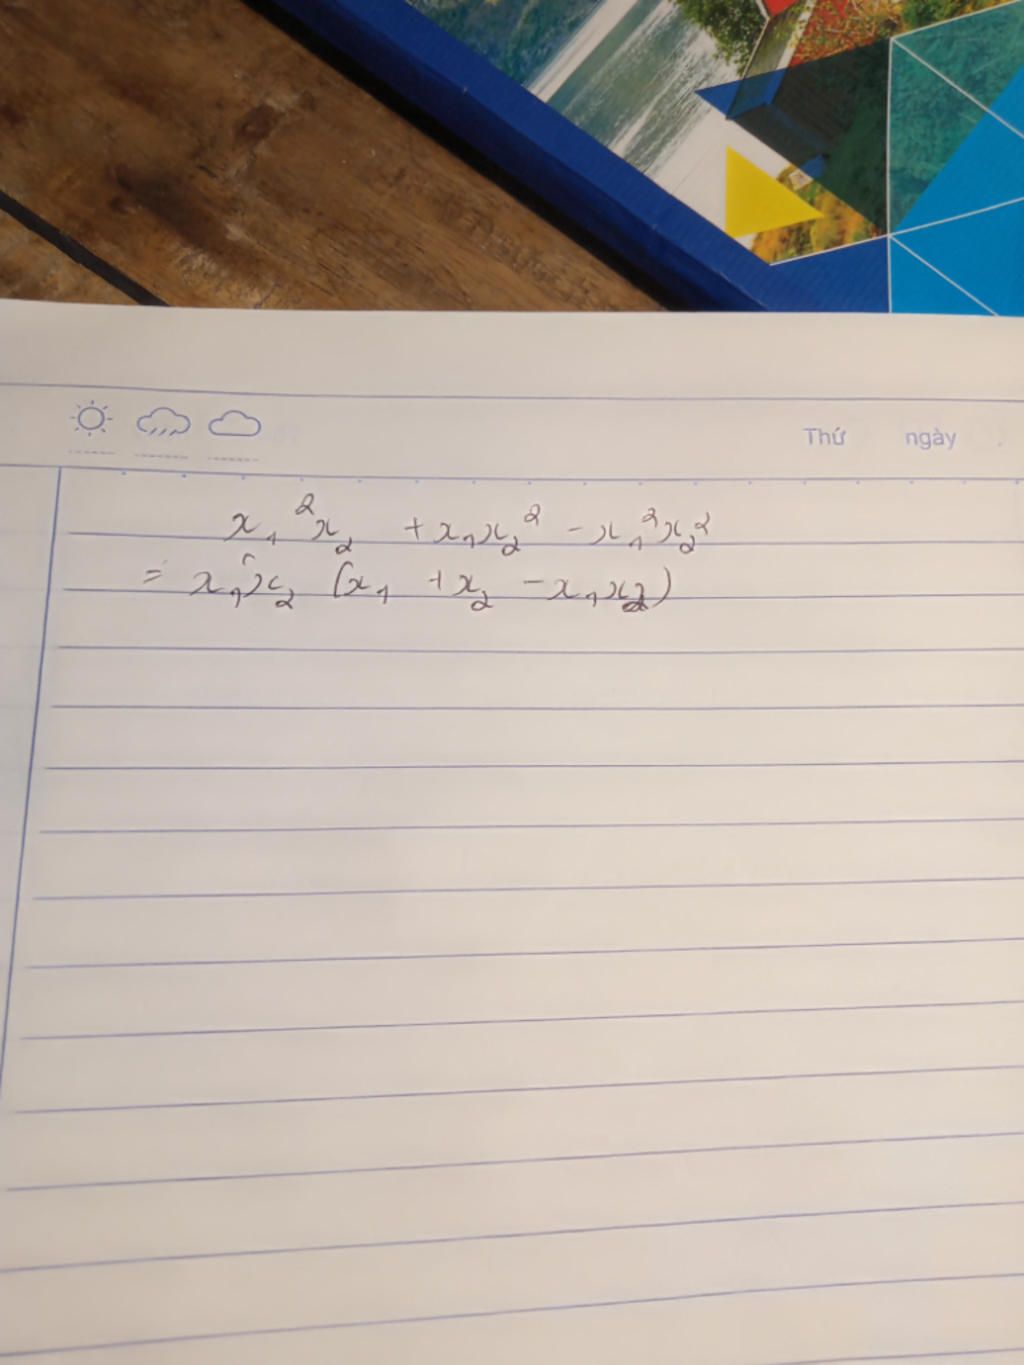 Thứ ngày
x₁²x₂ + x₁x₂² - x₁²x₂²
= x₁x₂ (x₁ + x₂ - x₁x₂)